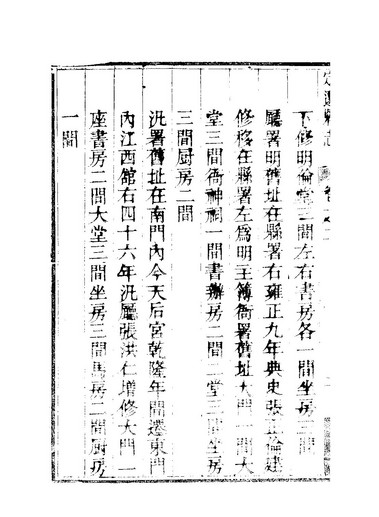 定遠縣志 卷之二
下修明倫堂三間左右書房各一間坐房三間
廳署明舊址在縣署右雍正九年典史張正倫建
修移在縣署左爲明主簿衙署舊址大門一間大
堂三間衙神祠一間書辦房二間二堂三間坐房
三間厨房二間
汛署舊址在南門內今天后宮乾隆年間遷東門
內江西館右四十六年汛廳張洪仁增修大門一
座書房二間大堂三間坐房三間馬房二間厨房
一間